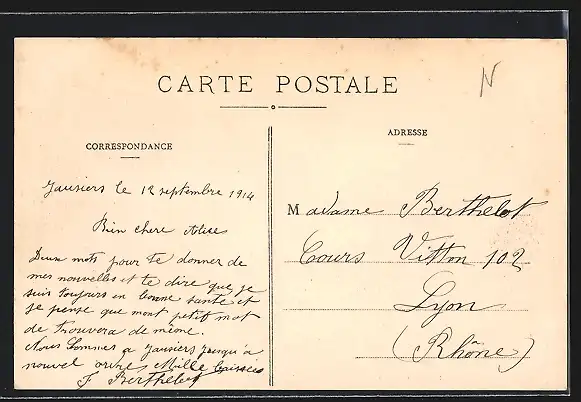 CARTE POSTALE
N
CORRESPONDANCE
ADRESSE
Jausiers le 12 septembre 1914
Bien chere Alise
Deux mots pour te donner de
mes nouvelles et te dire que je
suis toujours en bonne santé et
je pense que mont petit mot
de trouvera de méme.
Nous Sommes a Jausiers jusqu'a
nouvel ordre Mille baisses
F Berthelot
Madame Berthelot
Cours Vitton 102
Lyon
(Rhône)